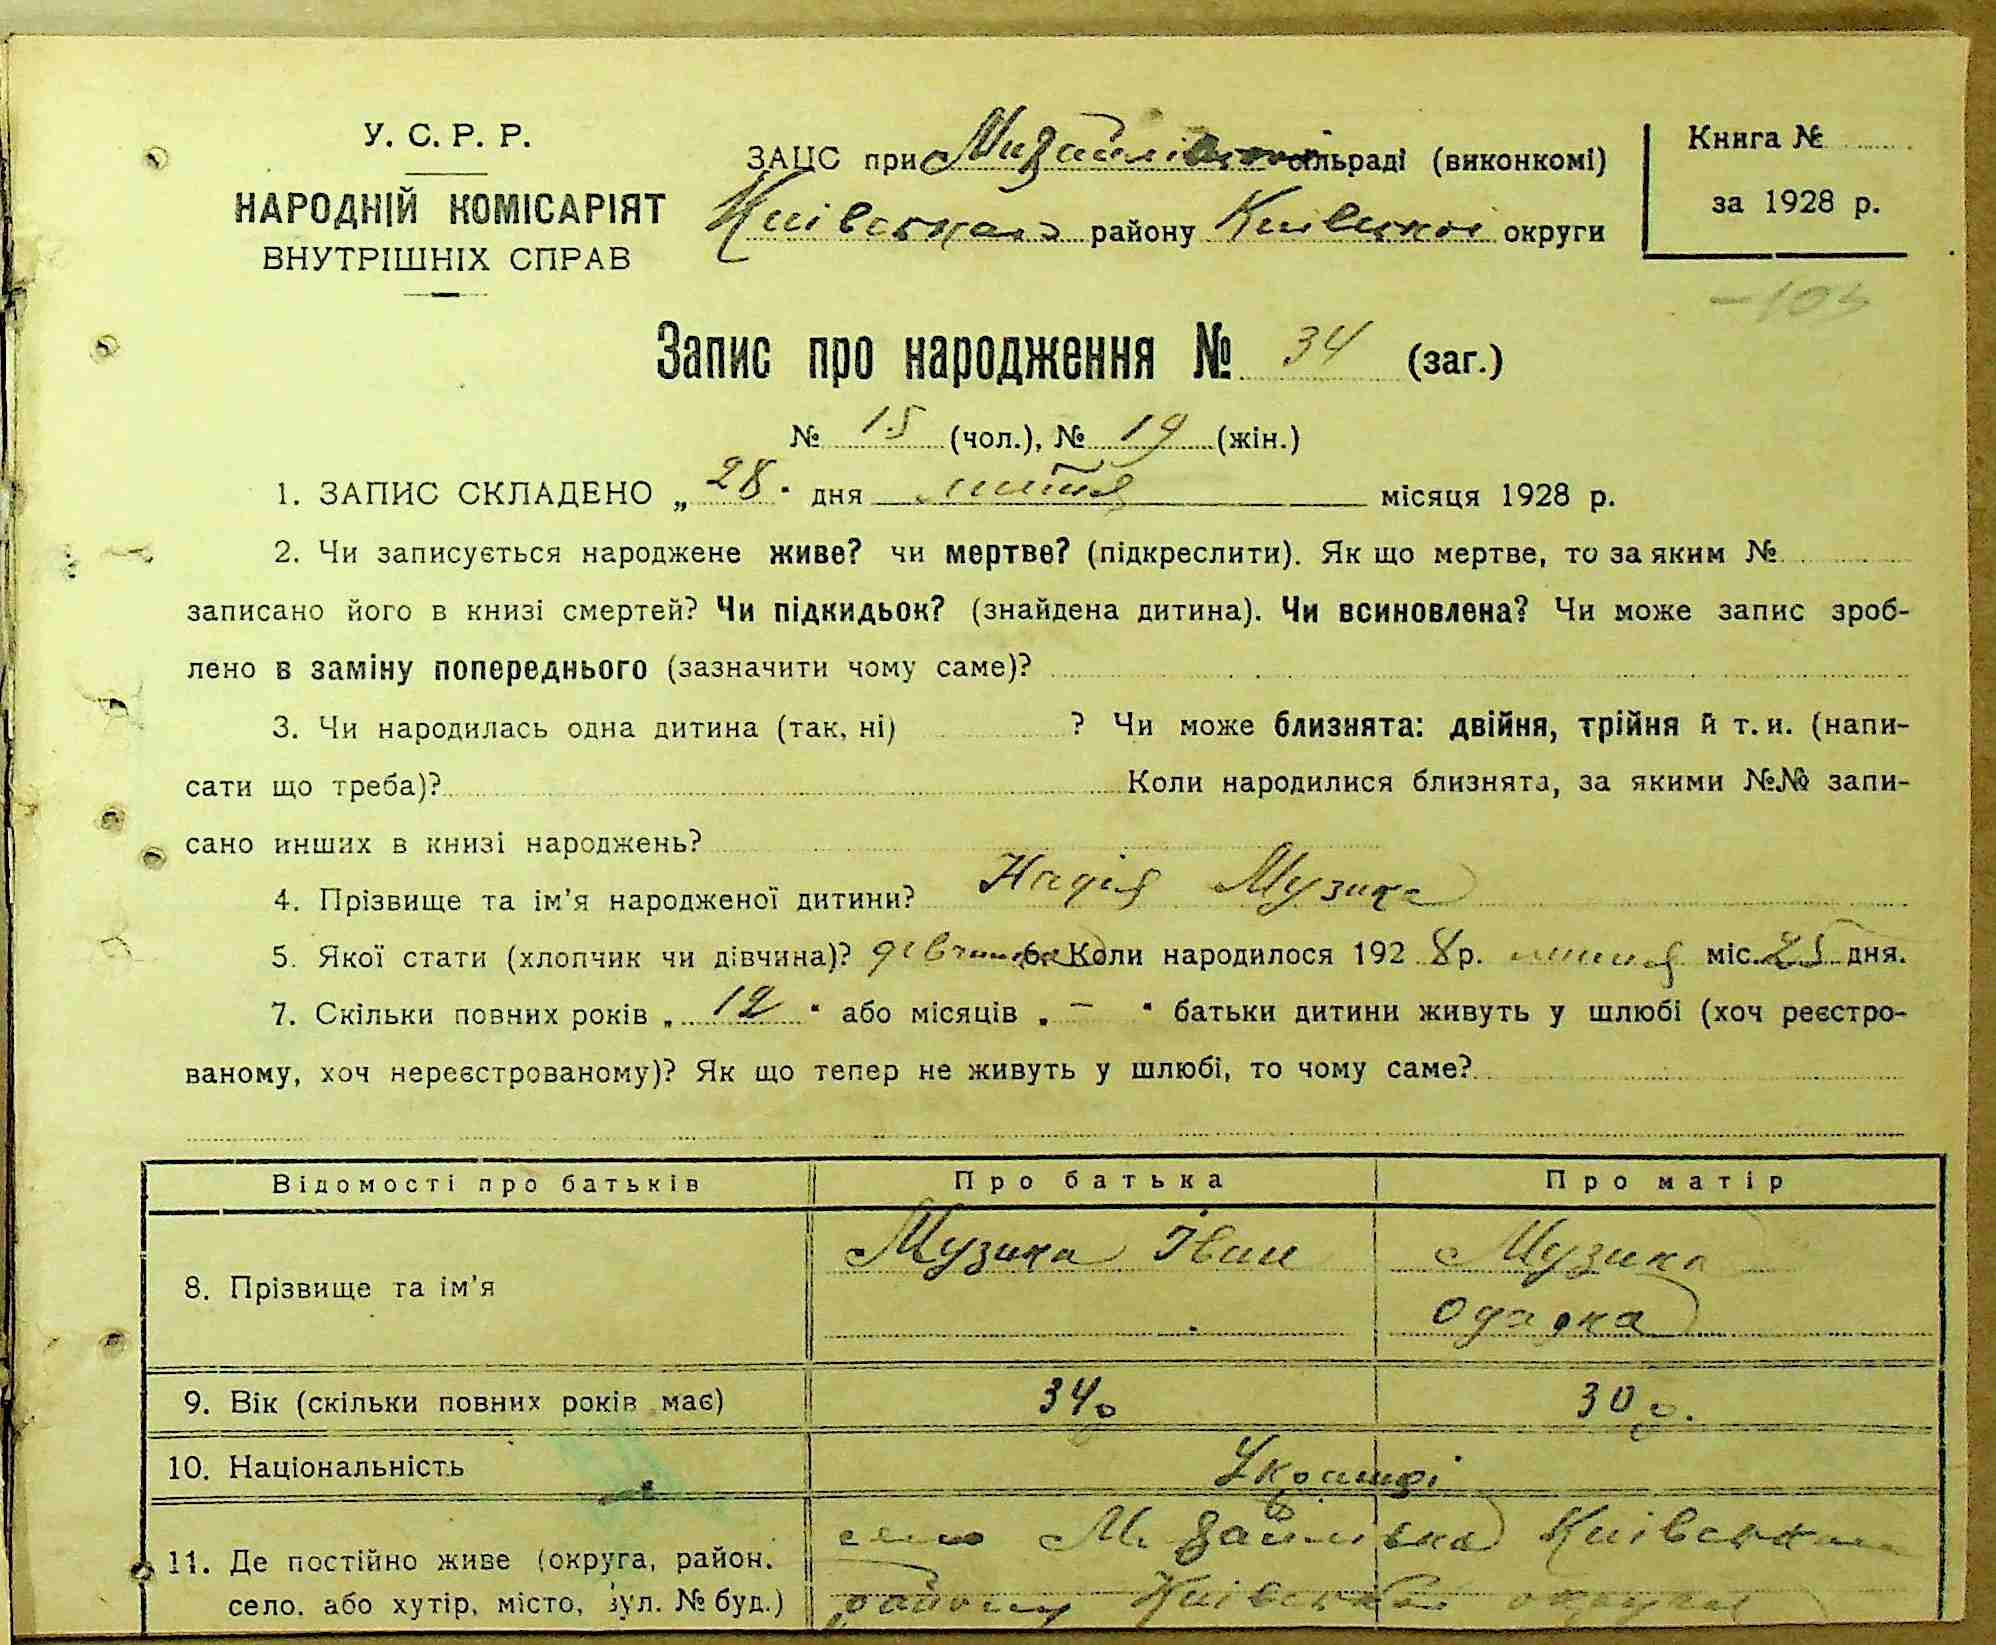 У. С. Р. Р.
НАРОДНІЙ КОМІСАРІЯТ
ВНУТРІШНІХ СПРАВ
ЗАЦС при сільраді (виконкомі)
Київського району Київської округи
Книга №
за 1928 р.
Запис про народження № 34 (заг.)
№ 15 (чол.), № 19 (жін.)
1. ЗАПИС СКЛАДЕНО „ 28 " дня липня місяця 1928 р.
2. Чи записується народжене живе? чи мертве? (підкреслити). Як що мертве, то за яким №
записано його в книзі смертей? Чи підкидьок? (знайдена дитина). Чи всиновлена? Чи може запис зроб-
лено в заміну попереднього (зазначити чому саме)?
3. Чи народилась одна дитина (так, ні) ? Чи може близнята: двійня, трійня й т. и. (напи-
сати що треба)? Коли народилися близнята, за якими №№ запи-
сано инших в книзі народжень?
4. Прізвище та ім'я народженої дитини? Надія Музика
5. Якої стати (хлопчик чи дівчина)? дівчинка 6. Коли народилося 1928 р. липня міс. 25 дня.
7. Скільки повних років „ 12 " або місяців „ – " батьки дитини живуть у шлюбі (хоч реєстро-
ваному, хоч нереєстрованому)? Як що тепер не живуть у шлюбі, то чому саме?
Відомості про батьків Про батька Про матір
8. Прізвище та ім'я Музика Іван Музика
Одарка
9. Вік (скільки повних років має) 34 р 30 р.
10. Національність Українці
11. Де постійно живе (округа, район, село Київського
село, або хутір, місто, вул. № буд.) району Київської округи